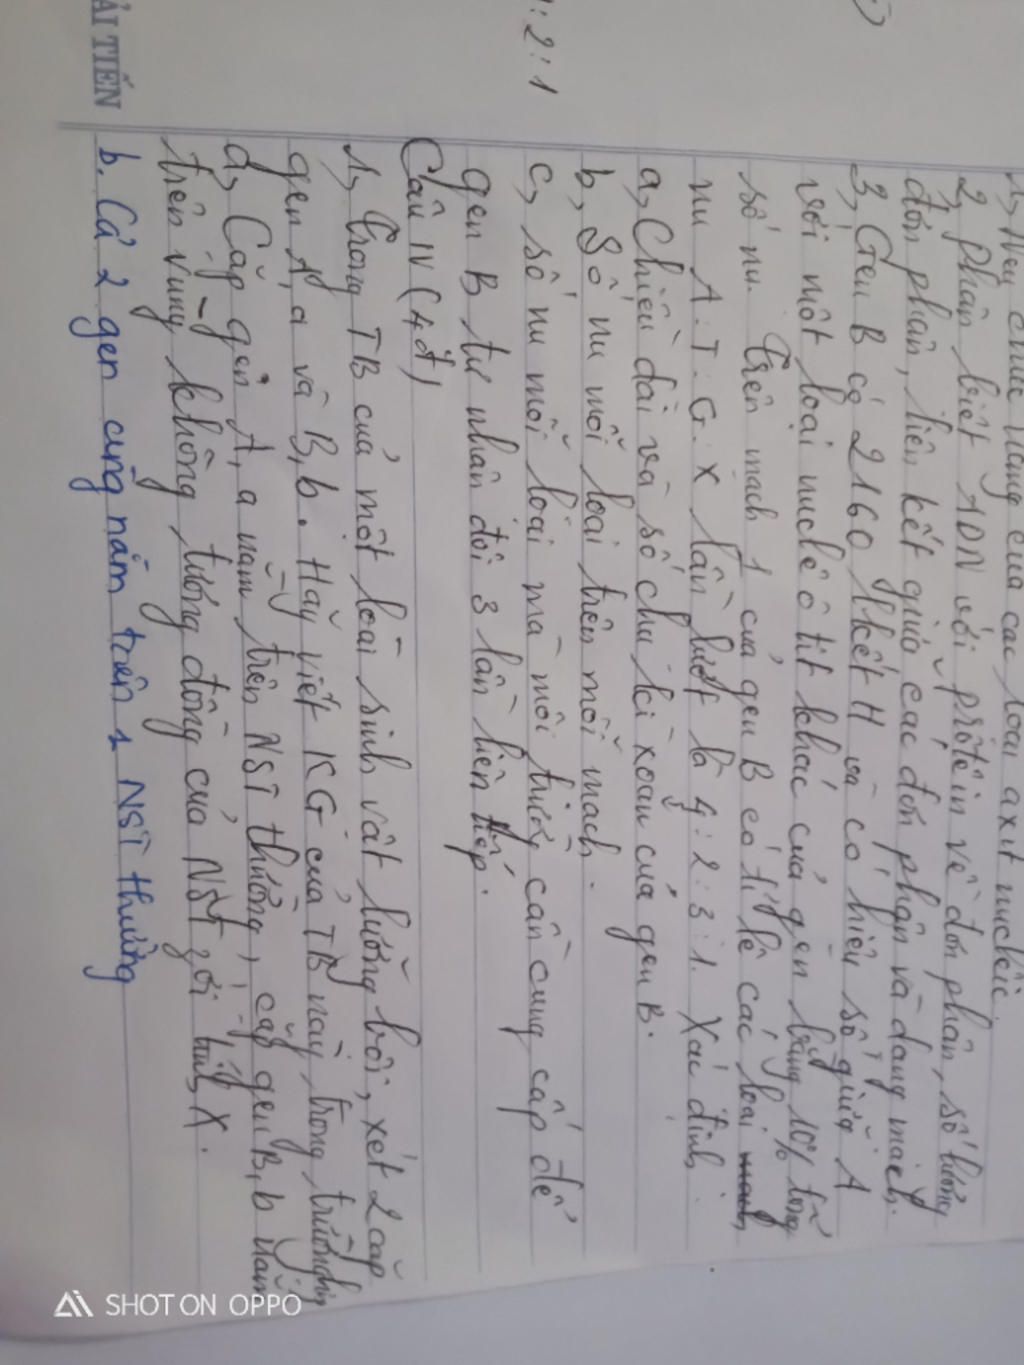 1, Nêu chức năng của các loại axit nuclêic.
2, Phân biệt ADN với prôtêin về đơn phân, số lượng
đơn phân, liên kết giữa các đơn phân và dạng mạch.
3, Gen B có 2160 lkết H và có hiệu số giữa A
với một loại nuclêôtit khác của gen bằng 10% tổng
số nu. Trên mạch 1 của gen B có tỉ lệ các loại
nu A : T : G : X lần lượt là 4 : 2 : 3 : 1. Xác định.
a, Chiều dài và số chu kì xoắn của gen B.
b, Số nu mỗi loại trên mỗi mạch.
c, số nu mỗi loại mà môi trường cần cung cấp để
gen B tự nhân đôi 3 lần liên tiếp.
Câu IV (4đ)
1, Trong TB của một loài sinh vật lưỡng bội, xét 2 cặp
gen A, a và B, b. Hãy viết KG của TB này trong trường hợp
a, Cặp gen A, a nằm trên NST thường, cặp gen B, b nằm
trên vùng không tương đồng của NST giới tính X.
b. Cả 2 gen cùng nằm trên 1 NST thường
: 2 : 1
ẢI TIẾN
SHOT ON OPPO